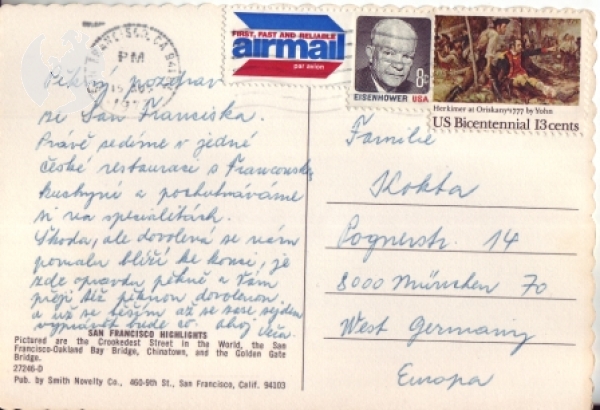 SAN FRANCISCO, CA 941
PM
FIRST, FAST AND RELIABLE
airmail
par avion
8c
EISENHOWER USA
Herkimer at Oriskany 1777 by Yohn
US Bicentennial 13 cents
Pěkný pozdrav
ze San Franciska.
Právě sedíme v jedné
české restauraci s Francouzskou
kuchyní a pochutnáváme
si na specialitách.
Škoda, ale dovolená se nám
pomalu blíží ke konci, je
zde opravdu pěkně a Vám
přeji též pěknou dovolenou
a už se těším až se zase sejdem
vyprávět bude co. ahoj
SAN FRANCISCO HIGHLIGHTS
Pictured are the Crookedest Street in the World, the San
Francisco-Oakland Bay Bridge, Chinatown, and the Golden Gate
Bridge.
27246-D
Pub. by Smith Novelty Co., 460-9th St., San Francisco, Calif. 94103
Familie
Kokta
Pognerstr. 14
8000 München 70
West Germany
Europa